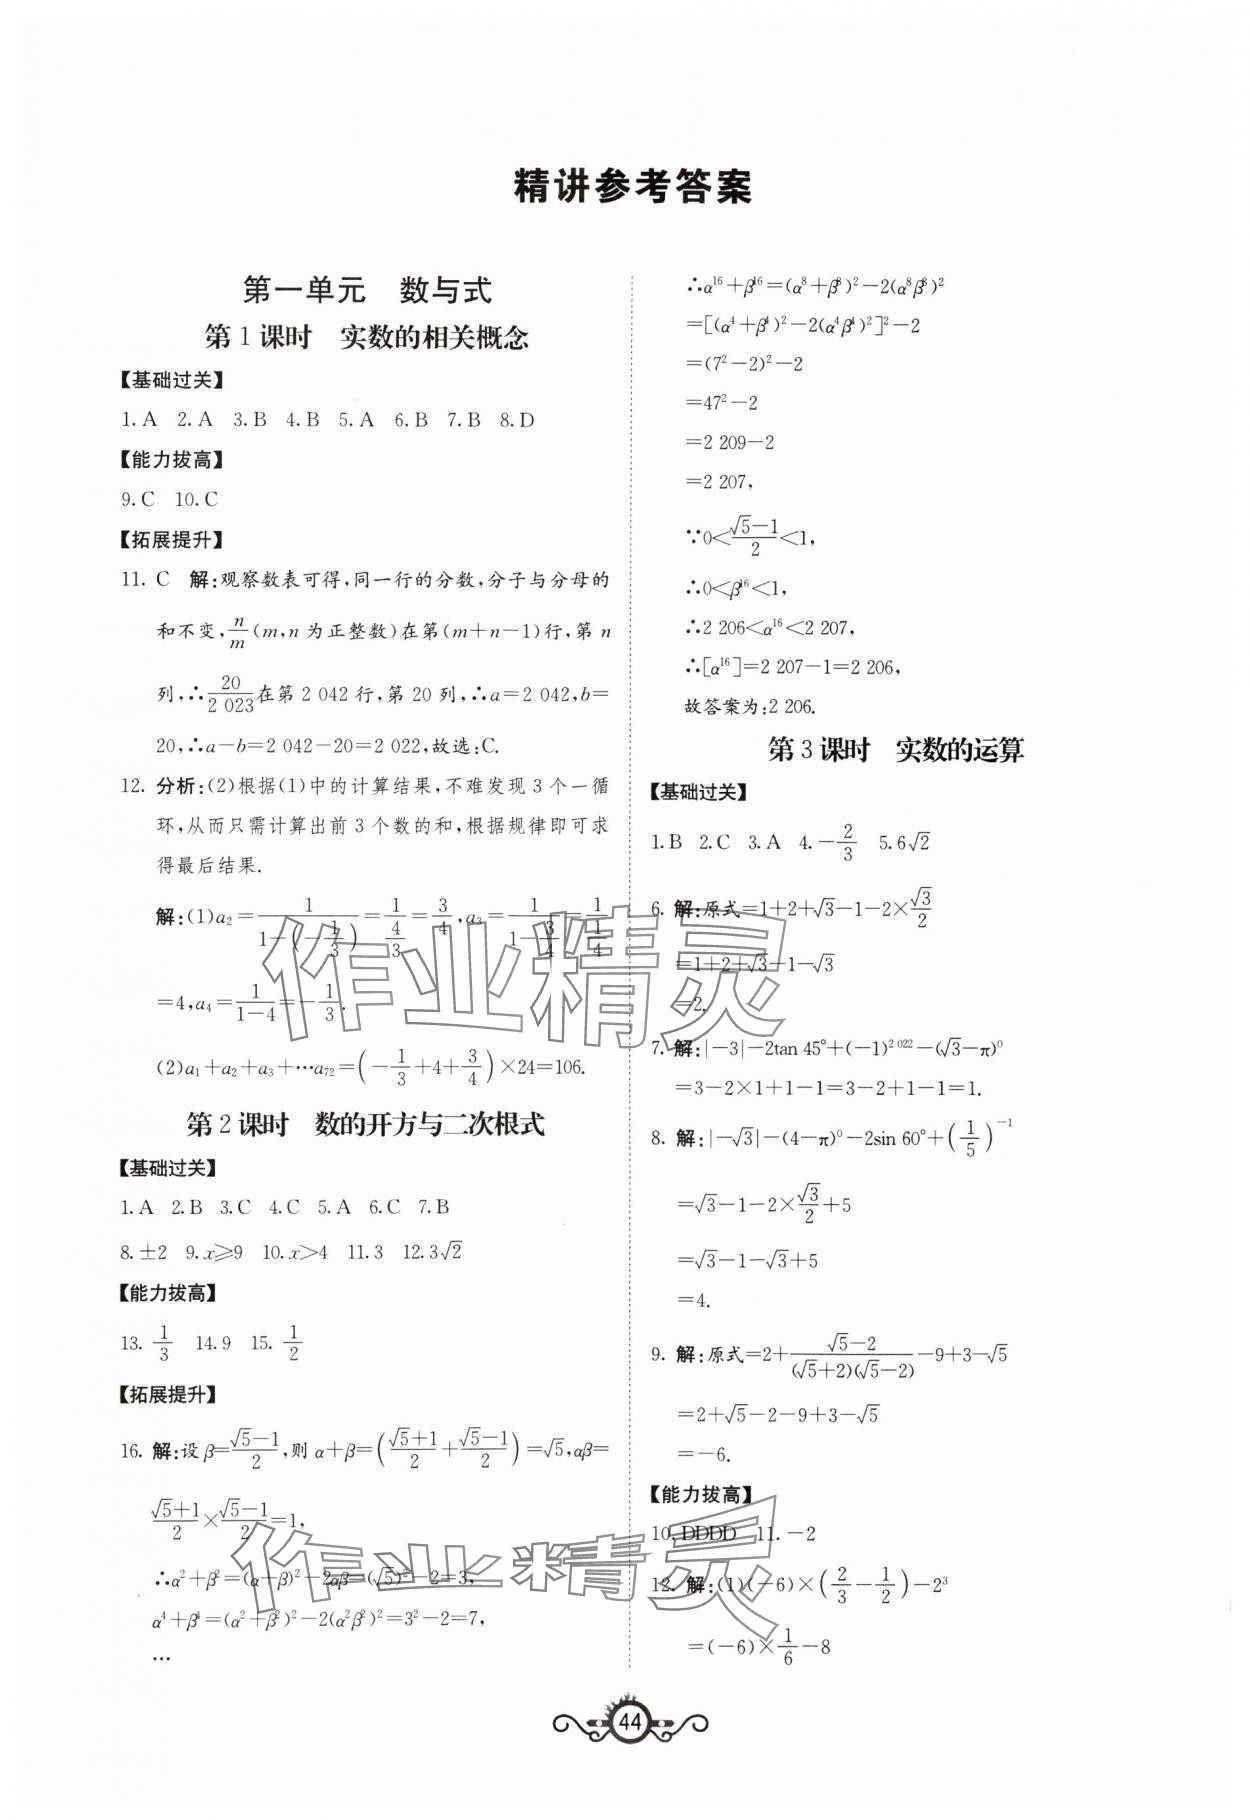 精讲参考答案
第一单元 数与式
第1课时 实数的相关概念
【基础过关】
1.A 2.A 3.B 4.B 5.A 6.B 7.B 8.D
【能力拔高】
9.C 10.C
【拓展提升】
11. C 解:观察数表可得,同一行的分数,分子与分母的
和不变,n/m(m,n 为正整数)在第(m+n-1)行,第 n
列,∴20/2 023在第 2 042 行,第 20 列,∴a=2 042,b=
20,∴a-b=2 042-20=2 022,故选:C.
12. 分析:(2)根据(1)中的计算结果,不难发现 3 个一循
环,从而只需计算出前 3 个数的和,根据规律即可求
得最后结果.
解:(1)a₂=1/(1-(-1/3))=1/(4/3)=3/4,a₃=1/(1-3/4)=1/(1/4)
=4,a₄=1/(1-4)=-1/3.
(2)a₁+a₂+a₃+…a₇₂=(-1/3+4+3/4)×24=106.
第2课时 数的开方与二次根式
【基础过关】
1.A 2.B 3.C 4.C 5.A 6.C 7.B
8.±2 9.x⩾9 10.x>4 11.3 12.3√2
【能力拔高】
13. 1/3 14.9 15. 1/2
【拓展提升】
16. 解:设β=(√5-1)/2,则 α+β=((√5+1)/2+(√5-1)/2)=√5,αβ=
(√5+1)/2×(√5-1)/2=1,
∴α²+β²=(α+β)²-2αβ=(√5)²-2=3,
α⁴+β⁴=(α²+β²)²-2(α²β²)²=3²-2=7,
…
∴α¹⁶+β¹⁶=(α⁸+β⁸)²-2(α⁸β⁸)²
=[(α⁴+β⁴)²-2(α⁴β⁴)²]²-2
=(7²-2)²-2
=47²-2
=2 209-2
=2 207,
∵0<(√5-1)/2<1,
∴0<β¹⁶<1,
∴2 206<α¹⁶<2 207,
∴[α¹⁶]=2 207-1=2 206,
故答案为:2 206.
第3课时 实数的运算
【基础过关】
1.B 2.C 3.A 4.-2/3 5.6√2
6. 解:原式=1+2+√3-1-2×√3/2
=1+2+√3-1-√3
=2.
7. 解:|-3|-2tan 45°+(-1)²⁰²²-(√3-π)⁰
=3-2×1+1-1=3-2+1-1=1.
8. 解:|-√3|-(4-π)⁰-2sin 60°+(1/5)⁻¹
=√3-1-2×√3/2+5
=√3-1-√3+5
=4.
9. 解:原式=2+(√5-2)/((√5+2)(√5-2))-9+3-√5
=2+√5-2-9+3-√5
=-6.
【能力拔高】
10.DDDD 11.-2
12. 解:(1)(-6)×(2/3-1/2)-2³
=(-6)×1/6-8
44
作业精灵
作业精灵